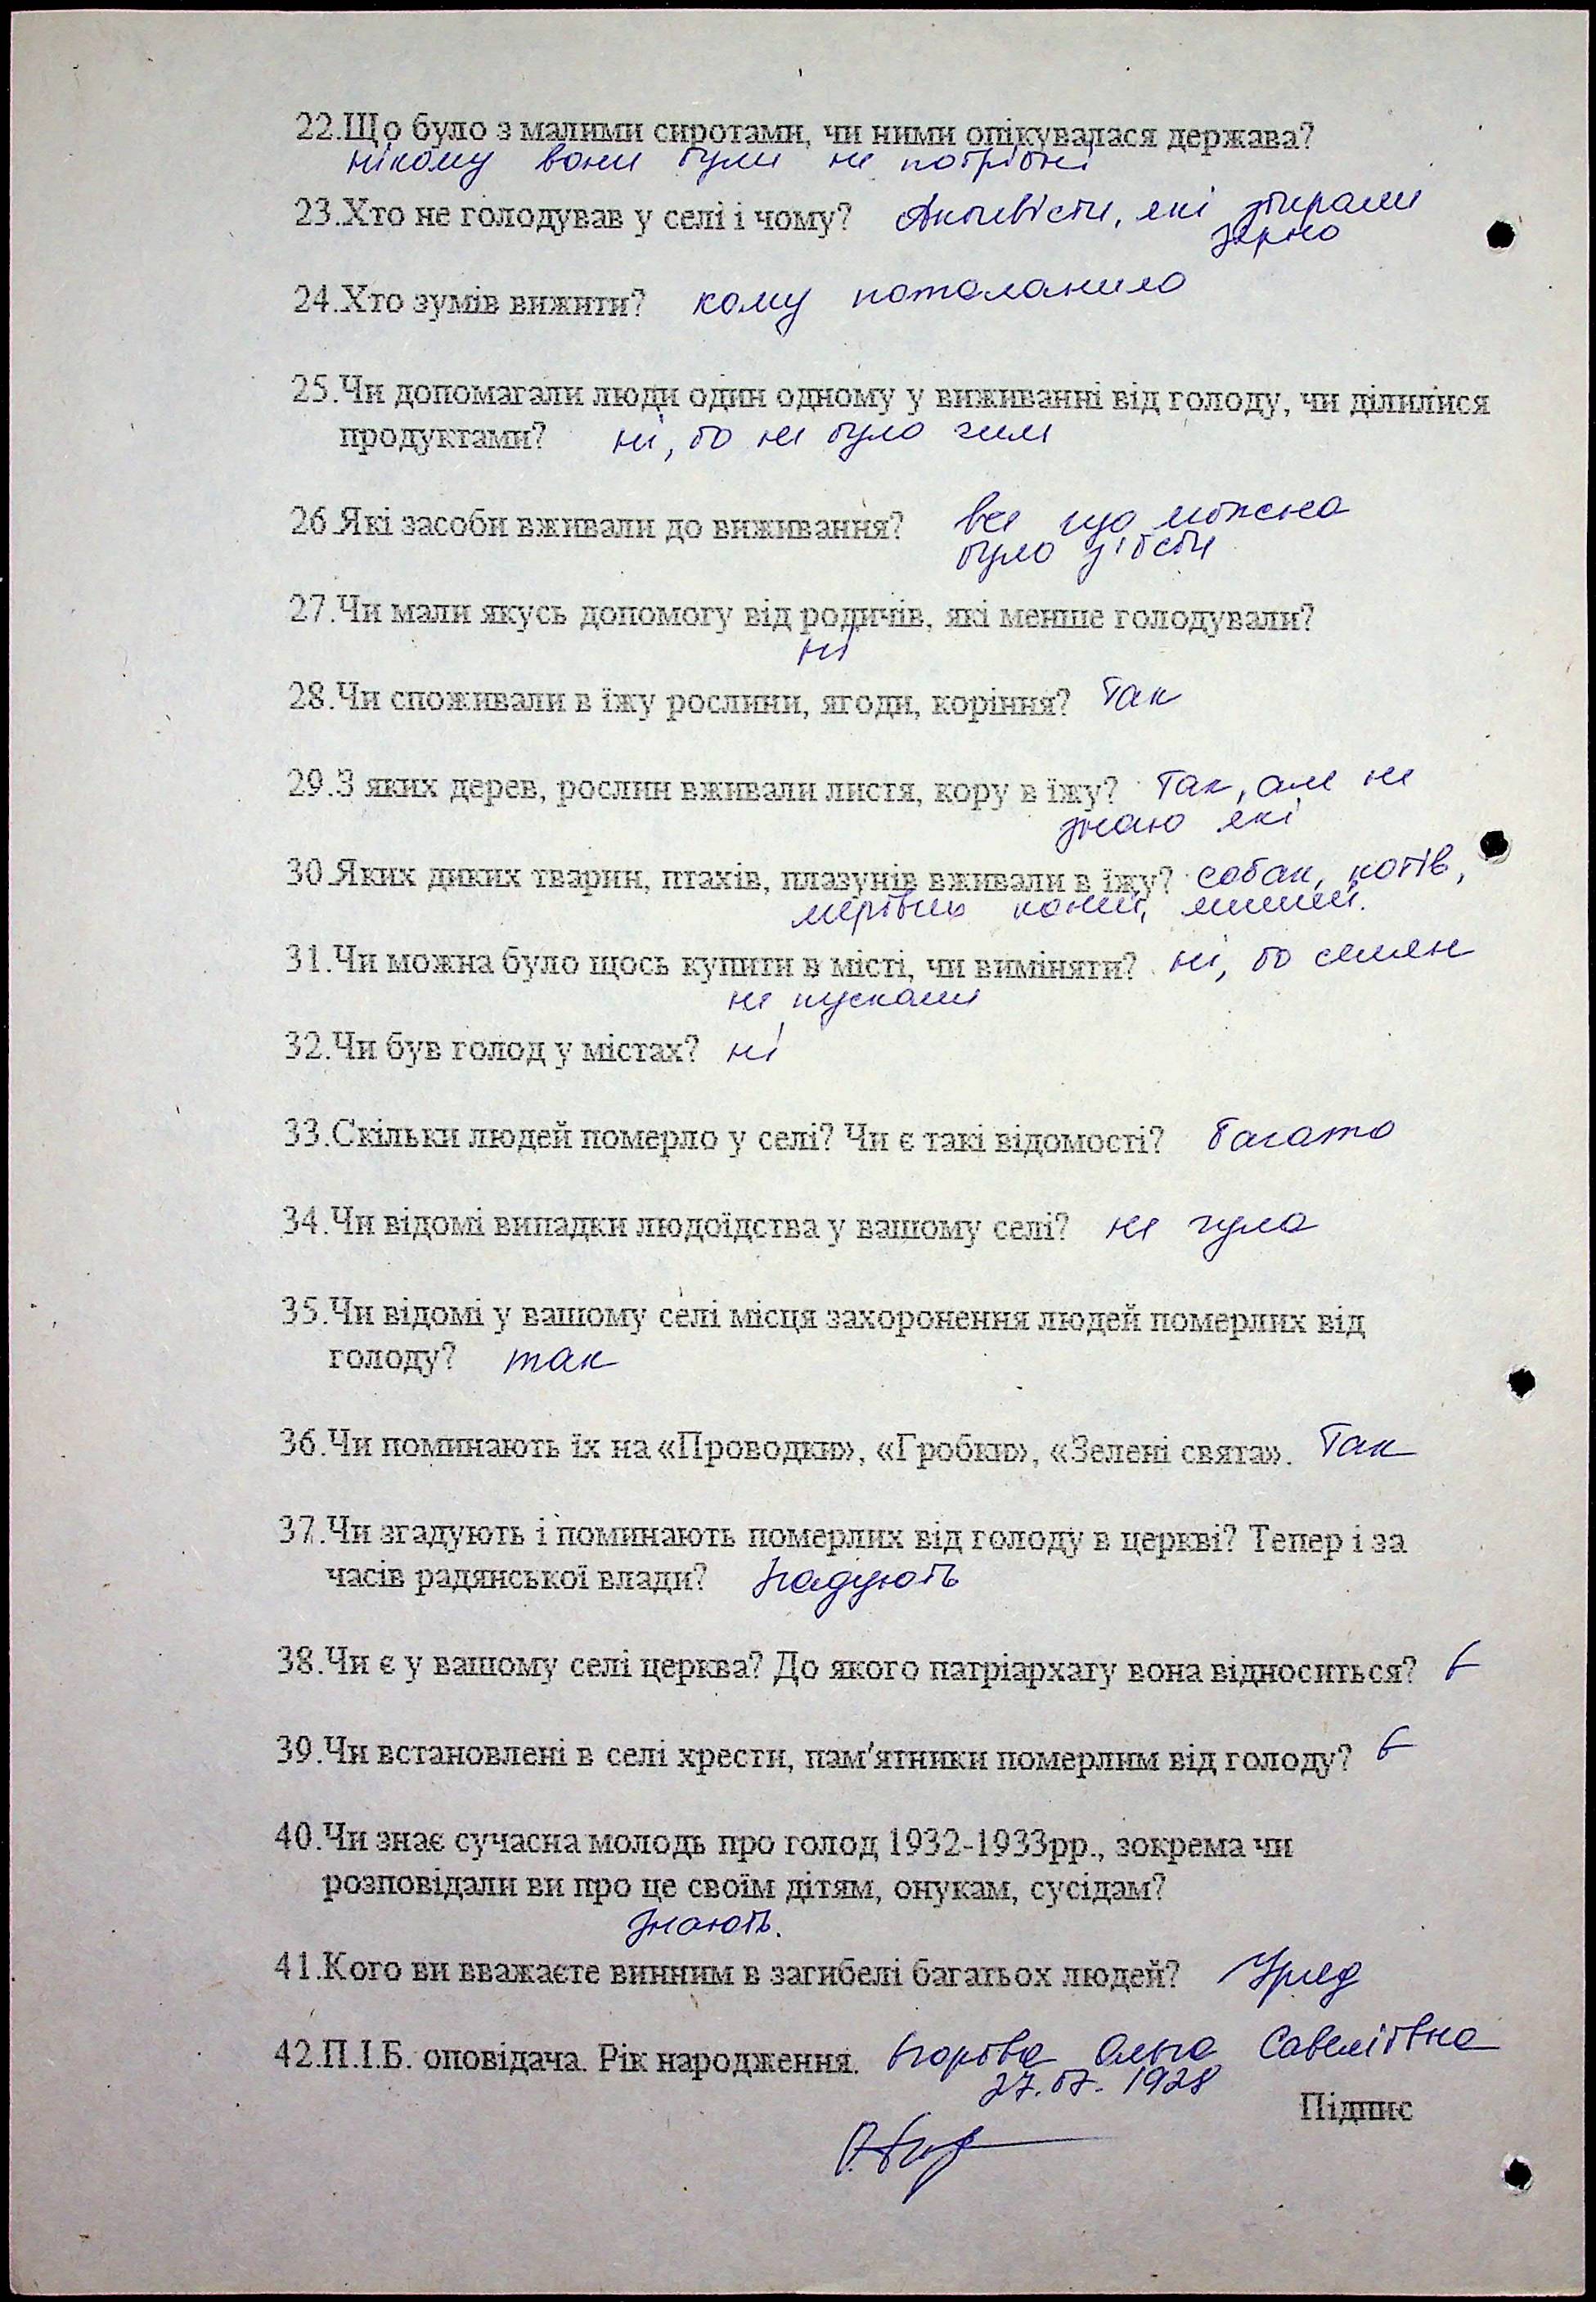 22.Що було з малими сиротами, чи ними опікувалася держава?
нікому вони були не потрібні
23.Хто не голодував у селі і чому? Активісти, які збирали
зерно
24.Хто зумів вижити? кому поталанило
25.Чи допомагали люди один одному у виживанні від голоду, чи ділилися
продуктами? ні, бо не було чим
26.Які засоби вживали до виживання? все що можна
було з'їсти
27.Чи мали якусь допомогу від родичів, які менше голодували?
ні
28.Чи споживали в їжу рослини, ягоди, коріння? так
29.З яких дерев, рослин вживали листя, кору в їжу? так, але не
знаю які
30.Яких диких тварин, птахів, плазунів вживали в їжу? собак, котів,
мертвих коней, мишей.
31.Чи можна було щось купити в місті, чи виміняти? ні, бо селян
не пускали
32.Чи був голод у містах? ні
33.Скільки людей померло у селі? Чи є такі відомості? багато
34.Чи відомі випадки людоїдства у вашому селі? не чула
35.Чи відомі у вашому селі місця захоронення людей померлих від
голоду? так
36.Чи поминають їх на «Проводки», «Гробки», «Зелені свята». Так
37.Чи згадують і поминають померлих від голоду в церкві? Тепер і за
часів радянської влади? згадують
38.Чи є у вашому селі церква? До якого патріархату вона відноситься? є
39.Чи встановлені в селі хрести, пам'ятники померлим від голоду? є
40.Чи знає сучасна молодь про голод 1932-1933рр., зокрема чи
розповідали ви про це своїм дітям, онукам, сусідам?
знають.
41.Кого ви вважаєте винним в загибелі багатьох людей? Уряд
42.П.І.Б. оповідача. Рік народження. Ольга Савеліївна
27.07.1928
Підпис